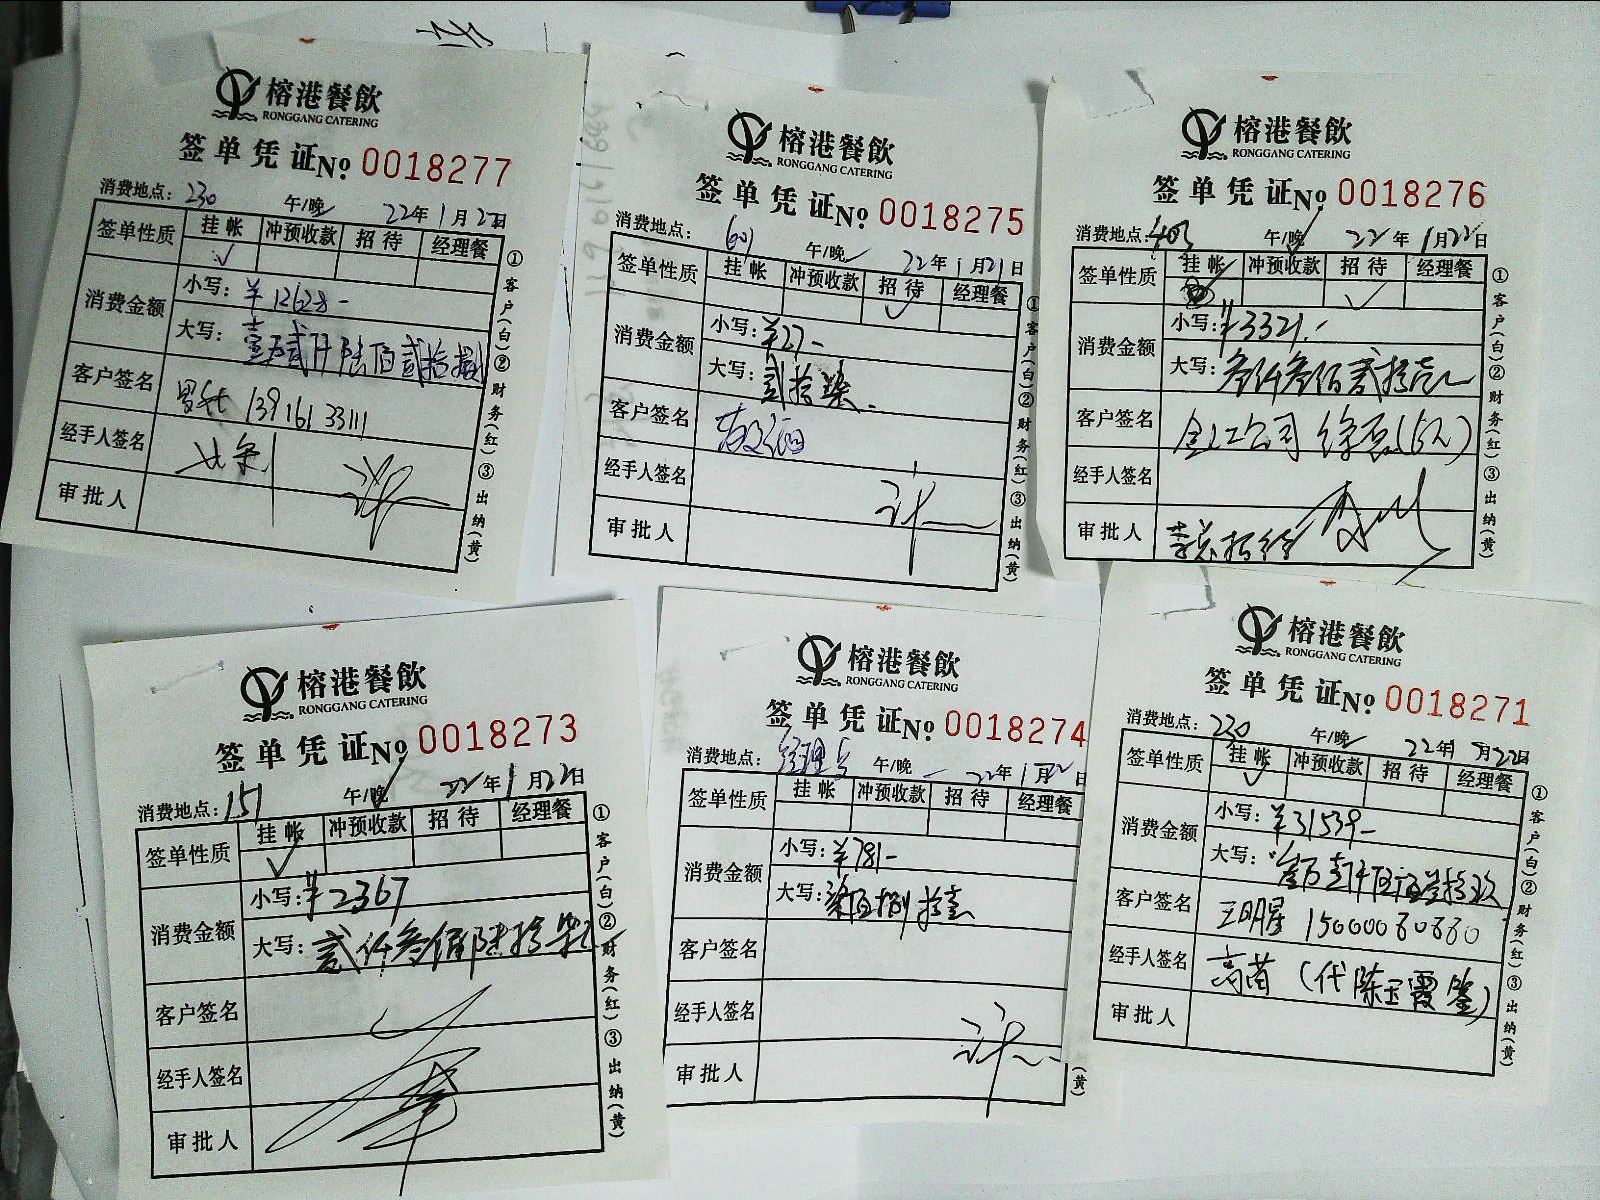 榕港餐飲
RONGGANG CATERING
签单凭证 No 0018277
消费地点: 230 午/晚 22年1月22日
签单性质 挂帐 冲预收款 招待 经理餐
消费金额 小写: ¥12628-
大写: 壹万贰仟陆佰贰拾捌
客户签名 13916133111
经手人签名
审批人
①客户(白)②财务(红)③出纳(黄)
榕港餐飲
RONGGANG CATERING
签单凭证 No 0018275
消费地点: 601 午/晚 22年1月21日
签单性质 挂帐 冲预收款 招待 经理餐
消费金额 小写: ¥27-
大写: 贰拾柒
客户签名
经手人签名
审批人
①客户(白)②财务(红)③出纳(黄)
榕港餐飲
RONGGANG CATERING
签单凭证 No 0018276
消费地点: 403 午/晚 22年1月22日
签单性质 挂帐 冲预收款 招待 经理餐
消费金额 小写: ¥3321.-
大写: 叁仟叁佰贰拾壹元
客户签名
经手人签名
审批人
①客户(白)②财务(红)③出纳(黄)
榕港餐飲
RONGGANG CATERING
签单凭证 No 0018273
消费地点: 151 午/晚 22年1月22日
签单性质 挂帐 冲预收款 招待 经理餐
消费金额 小写: ¥2367
大写: 贰仟叁佰陆拾柒元
客户签名
经手人签名
审批人
①客户(白)②财务(红)③出纳(黄)
榕港餐飲
RONGGANG CATERING
签单凭证 No 0018274
消费地点: 午/晚 22年1月22日
签单性质 挂帐 冲预收款 招待 经理餐
消费金额 小写: ¥781-
大写: 柒佰捌拾壹
客户签名
经手人签名
审批人
(黄)
榕港餐飲
RONGGANG CATERING
签单凭证 No 0018271
消费地点: 230 午/晚 22年 月22日
签单性质 挂帐 冲预收款 招待 经理餐
消费金额 小写: ¥31539-
大写: 叁万壹仟伍佰叁拾玖
客户签名 王明星 15000060660
经手人签名 高苗(代陈玉霞签)
审批人
①客户(白)②财务(红)③出纳(黄)